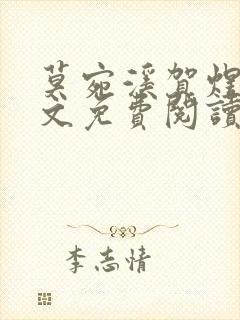 莫宛溪賀煜
文免費閱讀
李志情